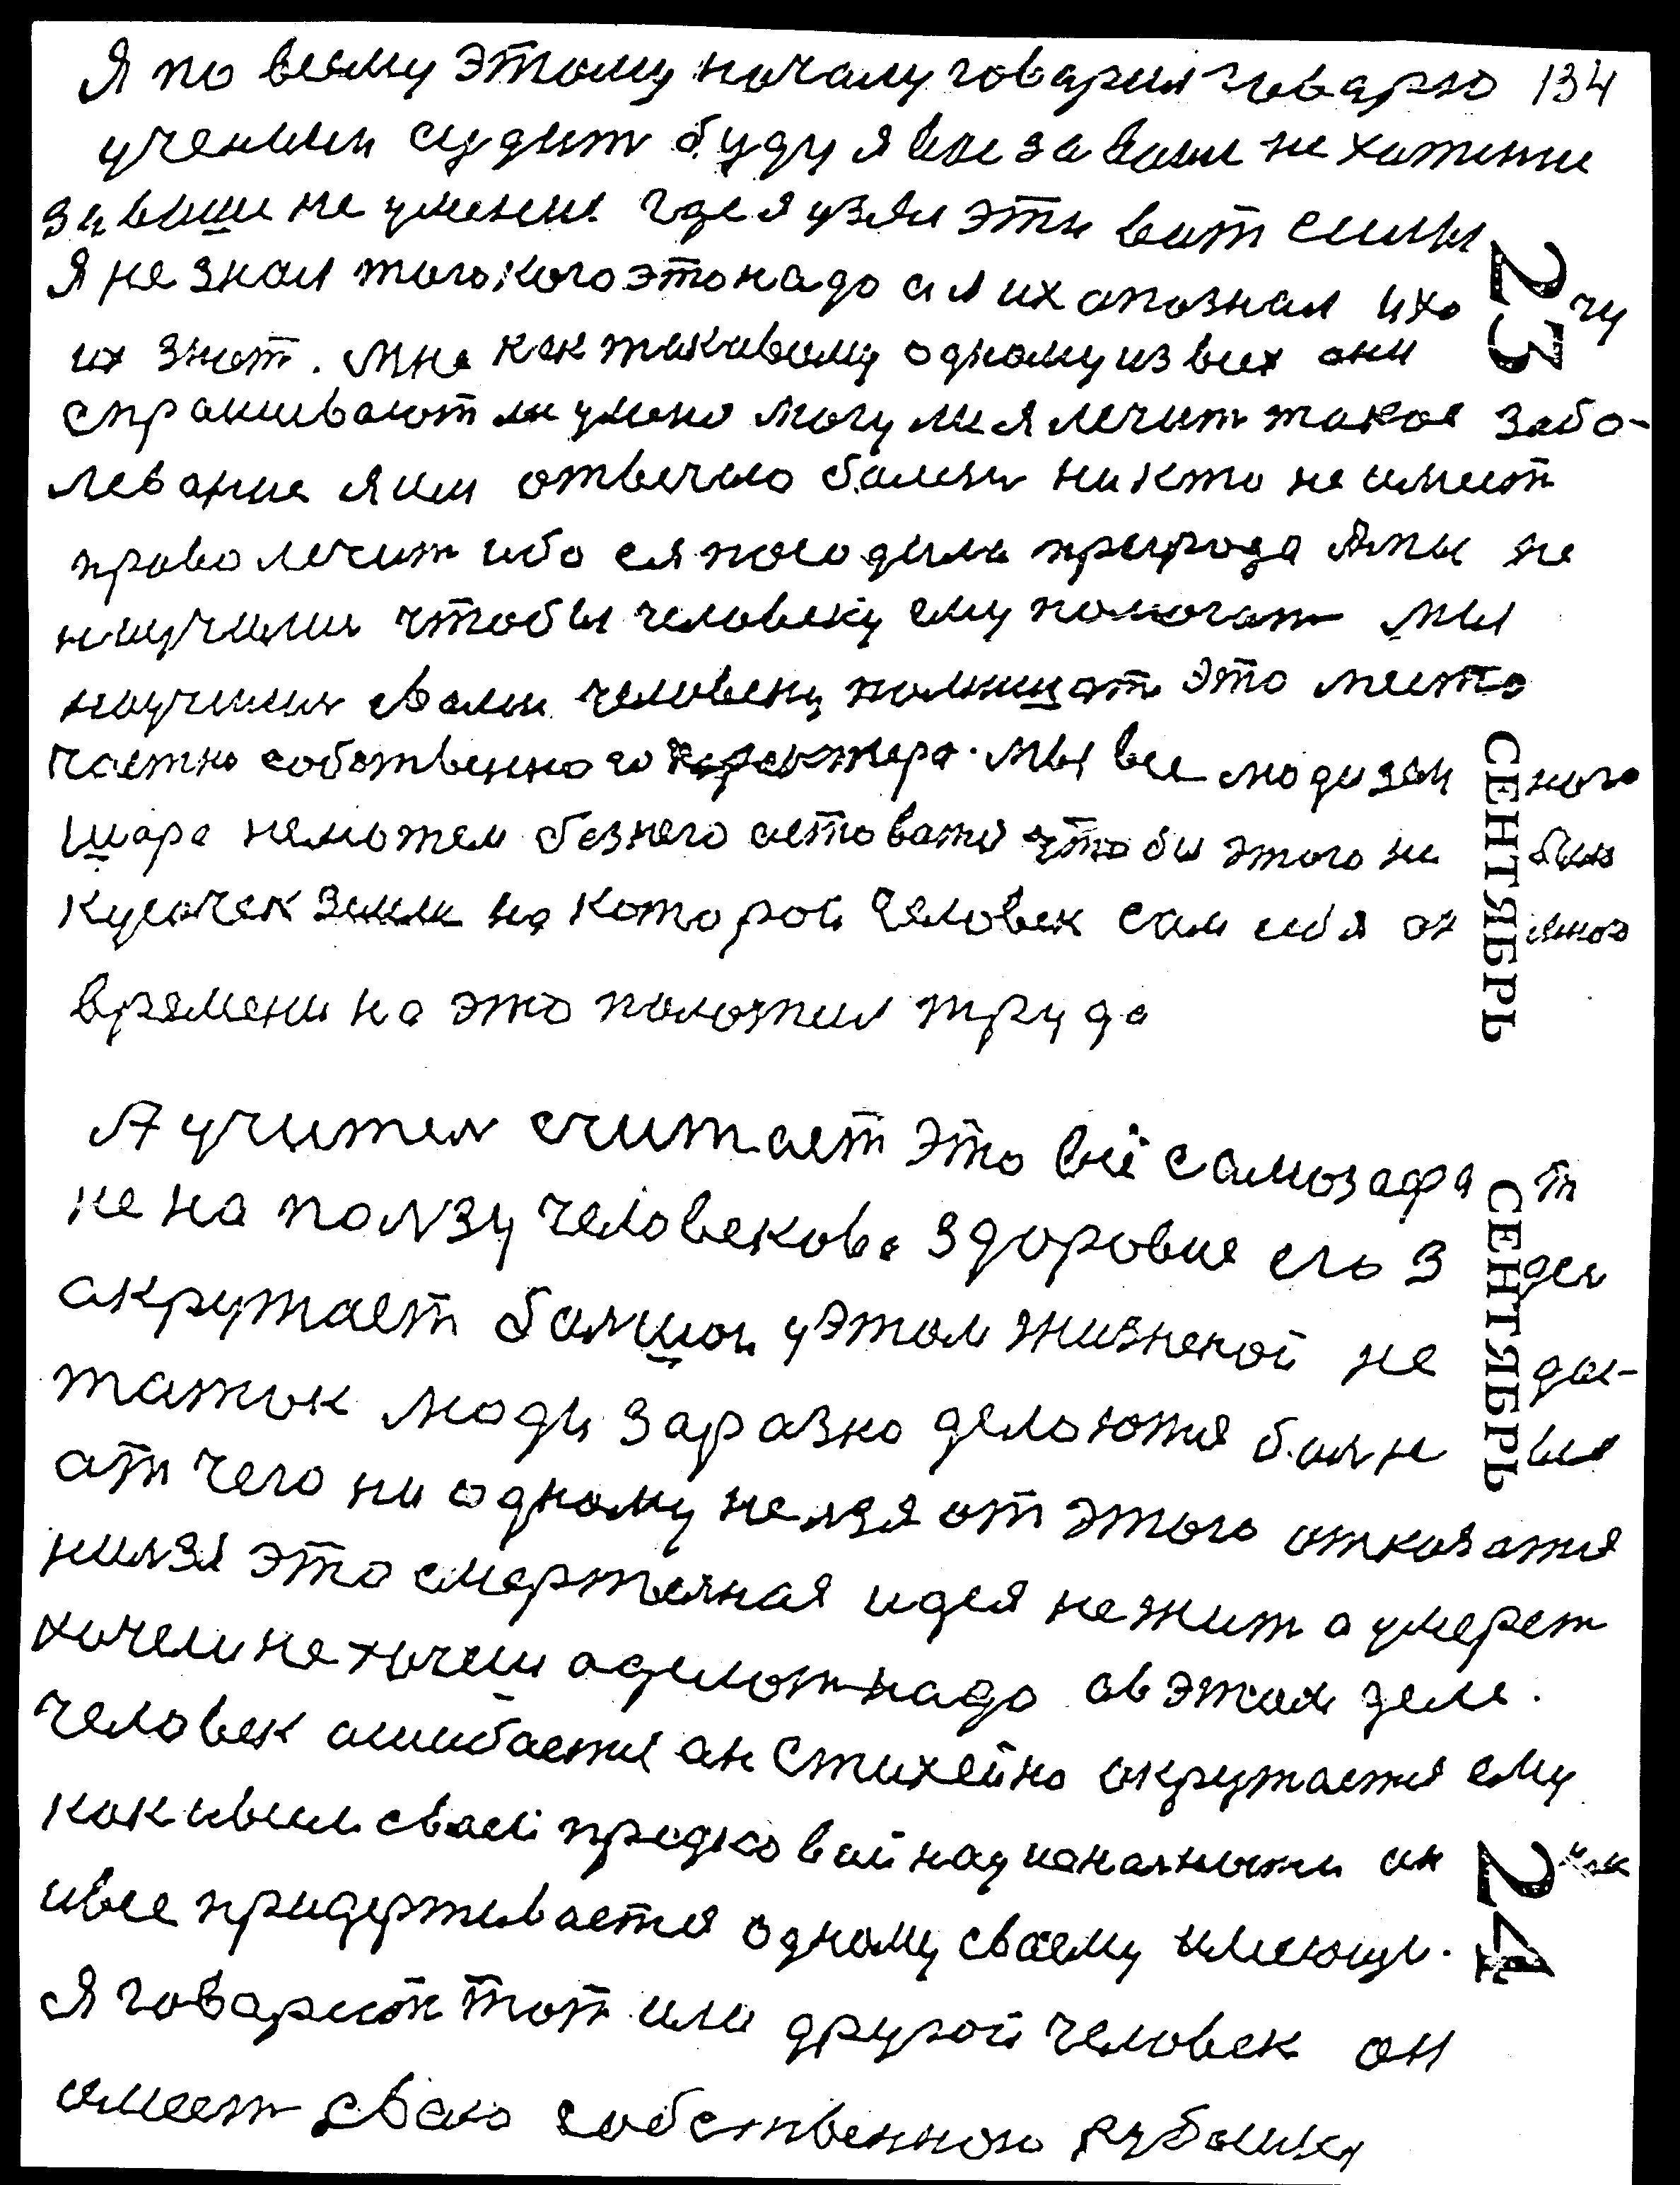 Я по всему этому началу говарил говарю 134
ученими судит буду я вас за ваше не хатение
за ваши не умение где я узял эти вот силы
Я не знал того кого это надо а я их апознал и хо чу
их знат. Мне как такавому одному из всех они
спрашивают ли умено могу ли я лечит такое забо-
левание я им отвечаю болезн никто не имеет
право лечит ибо ея посадила природа А мы не
научилис чтобы человеку ему помогат мы
научилис сваем человеку помишат это место
частно собственного характера. Мы все люди зем ного
шара неможем безнего астоватся чтобы этого не было
кусочек земли на которой человек сам себя он много
времени на это положил труда
А учител считает это всё самозафа т
не на ползу человекова здоровия его з дес
акружает балшой у этом жизненой не дас-
таток люди заразно делаются болн ыя
от чего ни одному нелзя от этого отказатся
нилзя это смертелная идея не жит а умерет
хочеш не хочеш а делат надо ав этом деле.
человек ашибается он стихейно акружается ему
как ивсем сваей предковай националности он как
ивсе придерживается одному сваему имеющи.
Я говарит тот или другой человек он
имеет сваю собственною рубашку
23
СЕНТЯБРЬ
СЕНТЯБРЬ
24